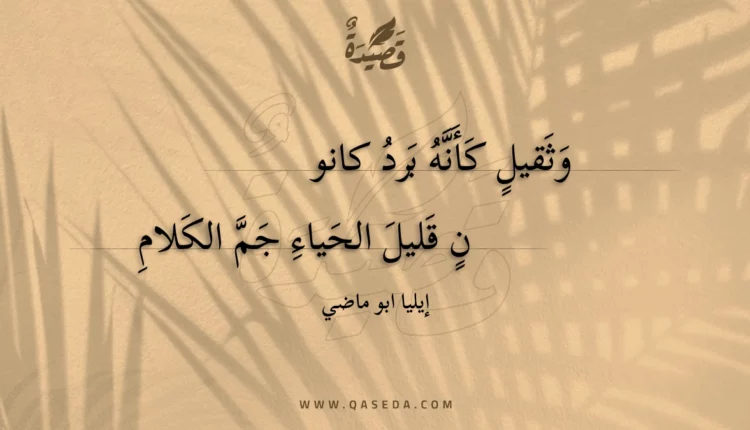 قَصِيْدَةٌ
وَثَقيلٍ كَأَنَّهُ بَردُ كانو
نٍ قَليلَ الحَياءِ جَمَّ الكَلامِ
إيليا ابو ماضي
WWW.QASEDA.COM